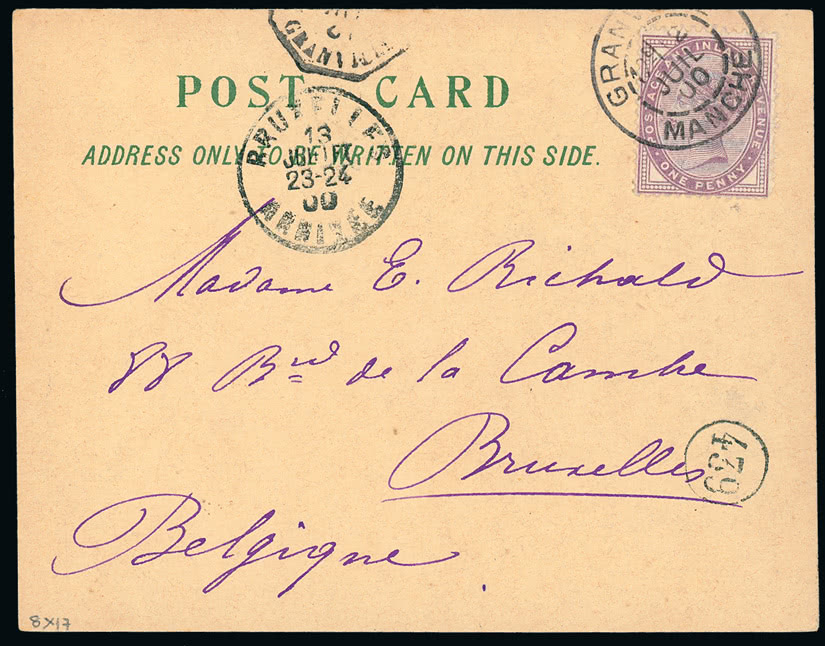 GRANVILLE
GRANVILLE
MANCHE
JUIL
00
POSTAGE AND INLAND REVENUE
ONE PENNY
POST CARD
ADDRESS ONLY TO BE WRITTEN ON THIS SIDE.
BRUXELLES
13
JUIL
23-24
00
ARRIVEE
Madame E. Richald
88 Brd de la Cambre
Bruxelles
439
Belgique.
8X17